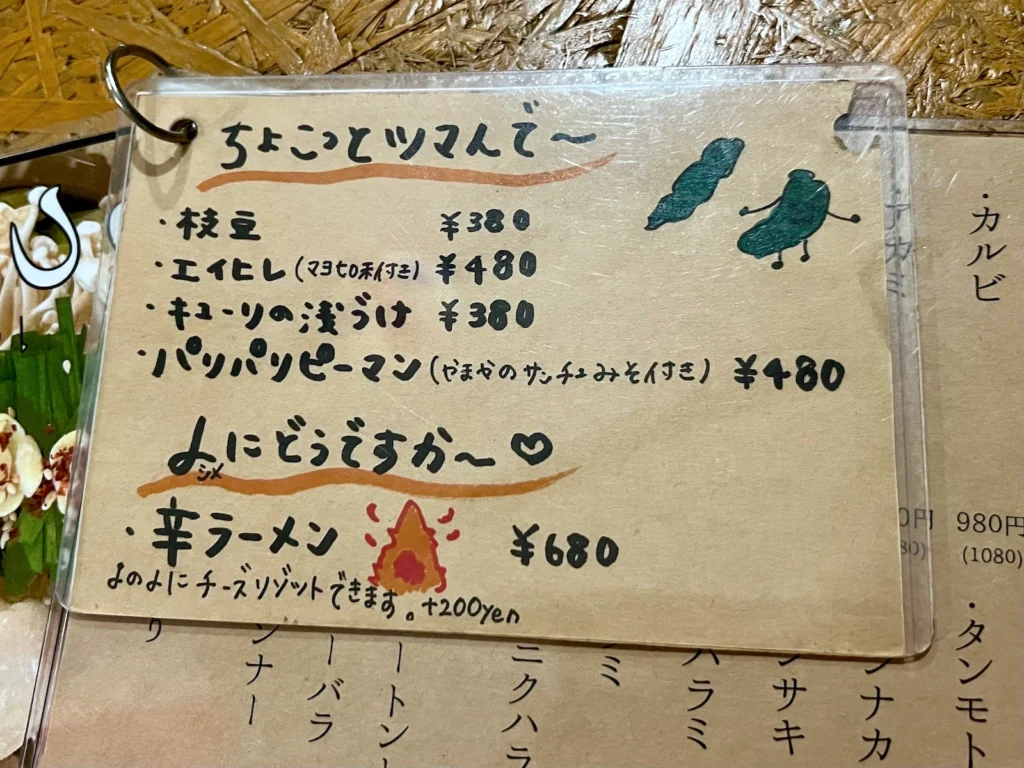 ちょこっとツマんで〜
・枝豆 ¥380
・エイヒレ(マヨ七味付き) ¥480
・キューリの浅づけ ¥380
・パリパリピーマン(やまやのサンチュみそ付き) ¥480
〆にどうですか〜♡
シメ
・辛ラーメン ¥680
〆の〆にチーズリゾットできます。+200yen
・カルビ
アカミ
980円
(1080)
0円
80)
・タンモト
ンナカ
ンサキ
ハラミ
ミ
ニクハラ
ートン
ーバラ
ンナー
り